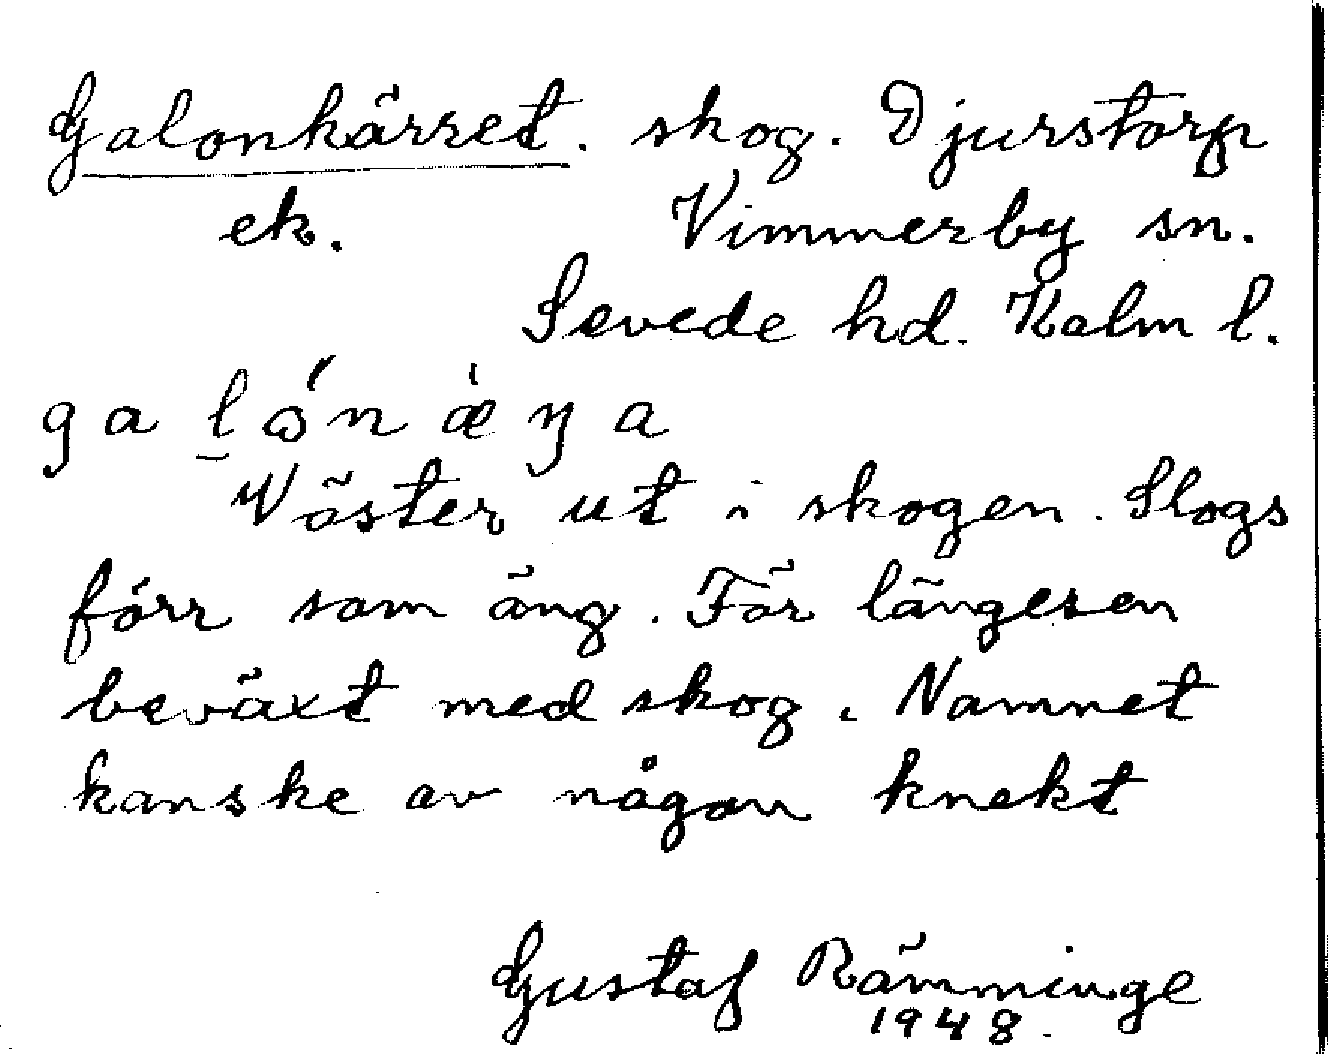 Galonkärret. skog. Djurstorp
ek. Vimmerby sn.
Sevede hd. Kalm l.
ga l̲ ǿ n æ̀ ŋ a
Väster ut i skogen. Slogs
förr som äng. För längesen
beväxt med skog. Namnet
kanske av någon knekt
Gustaf Rämminge
1948.